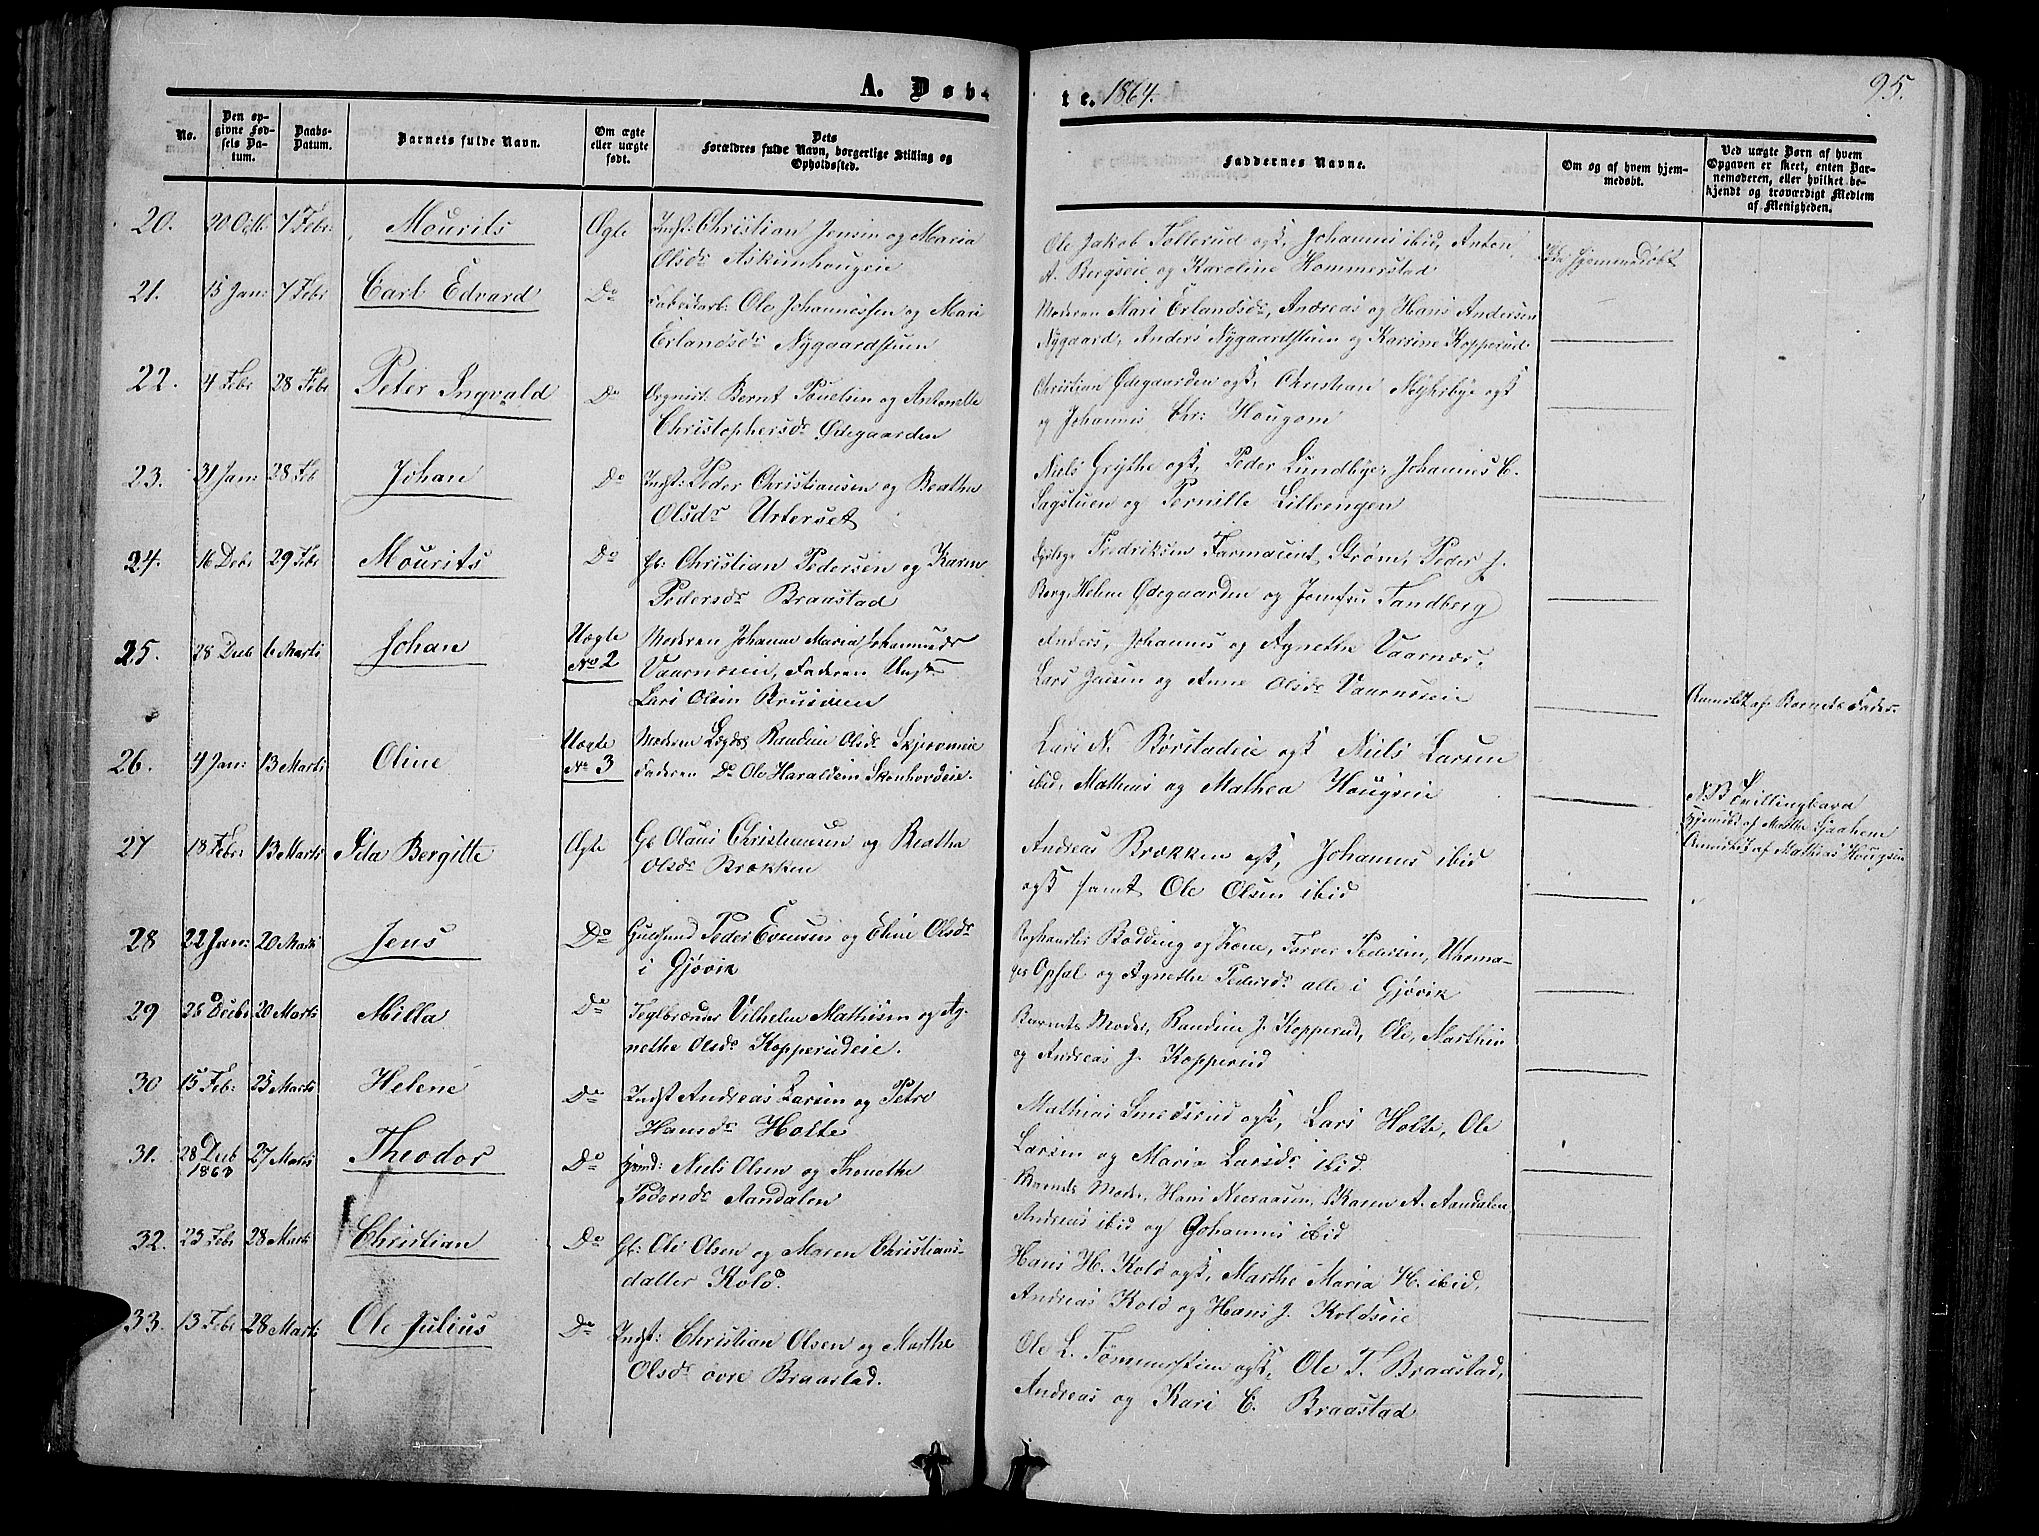 A. Døb-
te. 1864.
95.
No.
Den op-
givne Fød-
sels Da-
tum.
Daabs-
Datum.
Barnets fulde Navn.
Om ægte
eller uægte
født.
Dets
Forældres fulde Navn, borgerlige Stilling og
Opholdssted.
Faddernes Navne.
Om og af hvem hjem-
medøbt.
Ved uægte Børn af hvem
Opgaven er skeet, enten Bar-
nemoderen, eller hvilket be-
kjendt og troværdigt Medlem
af Menigheden.
20. 20 Octb. 7 Febr: Mourits Ægte Indst: Christian Jensen og Maria
Olsdr Askimhougeie
Ole Jakob Tollerud ogsk, Johannes ibid, Anton
A. Bergseie og Karoline Hommerstad
hjemmedøbt
21. 15 Jan: 7 Febr Carl Edvard Do Ole Johannessen og Mari
Erlandsdr Nygaardstuen
Moderen Mari Erlandsdr, Andreas og Hans Andersen
Nygaard, Anders Nygaardstuen og Karine Kopperud
22. 4 Febr 28 Febr Peter Ingvald Do Bernt Pouelsen og Antonette
Christophersdr Ødegaarden
Christian Ødegaarden ogsk, Christian Myhrbye ogsk
og Johannes Chr: Hougom
23. 31 Jan: 28 Feb Johan Do Indst: Peder Christiansen og Beathe
Olsdr Urterset
Niels Grythe ogsk, Peder Lundbye, Johannes C.
Sagstuen og Pernille Lilleengen
24. 16 Debr 29 Febr Mourits Do Gb: Christian Pedersen og Karen
Pedersdr Braastad
Fredriksen Farmaceut Strøm, Peder J.
Berg, Helene Ødegaarden og Jomfru Tandberg
25. 28 Deeb 6 Marts Johan Uægte
No 2 Moderen Johanne Maria Johannesdr
Vaarnæseie, Faderen Ungk
Lars Olsen Bruseien
Anders, Johannes og Agnethe Vaarnæs,
Lars Jansen og Anne Olsdr Vaarnæseie
Anmeldt af Barnets Fader
26. 4 Jan: 13 Marts Oline Uægte
No 3 Moderen Randine Olsdr
Faderen Do Ole Haraldsen
Lars N. Borstadeie ogsk Niels Larsen
ibid, Mathias og Mathea Hougseie
N.B. Tvillingbarn
Hjemdbt af Marthe
Anmeldt af Mathias Hougseie
27 18 Febr: 13 Marts Ida Bergitte Ægte Gb Olaus Christiansen og Beatha
Olsdr Brækken
Andreas Brækken ogsk, Johannes ibid
ogsk samt Ole Olsen ibid
28 22 Jan: 20 Marts Jens Do Guldsmd Peder Evensen og Eline Olsdr
i Gjøvik
Bødding og Kone, Farver Pedersen, Uhrma-
ger Opsal og Agnethe Pedersdr alle i Gjøvik
29 26 Deebr 20 Marts Milla Do Teglbrænder Vilhelm Mathisen og Ag-
nethe Olsdr Kopperudeie.
Barnets Moder, Randine J. Kopperud, Ole, Marthin
og Andreas J. Kopperud
30 15 Feb: 25 Marts Helene Do Indst Andreas Larsen og Petra
Hansdr Holte
Mathias Smedsrud ogsk, Lars Holte, Ole
Larsen og Maria Larsdr ibid.
31. 28 Deeb
1863 27 Marts Theodor Do Niels Olsen og Kenethe
Pedersdr Aandalen
Barnets Moder, Hans Karen A. Aandalen
Andreas ibid og Johannes ibid
32. 23 Febr 28 Marts Christian Do Gb: Ole Olsen og Maren Christians-
datter Kolö.
Hans H. Kolö ogsk, Marthe Maria H. ibid,
Andreas Kolö og Hans J. Kolöseie
33. 13 Febr 28 Marts Ole Julius Do Indst: Christian Olsen og Marthe
Olsdr övre Braastad.
Ole L. Tømmerstuen ogsk, Ole T. Braastad,
Andreas og Kari C. Braastad